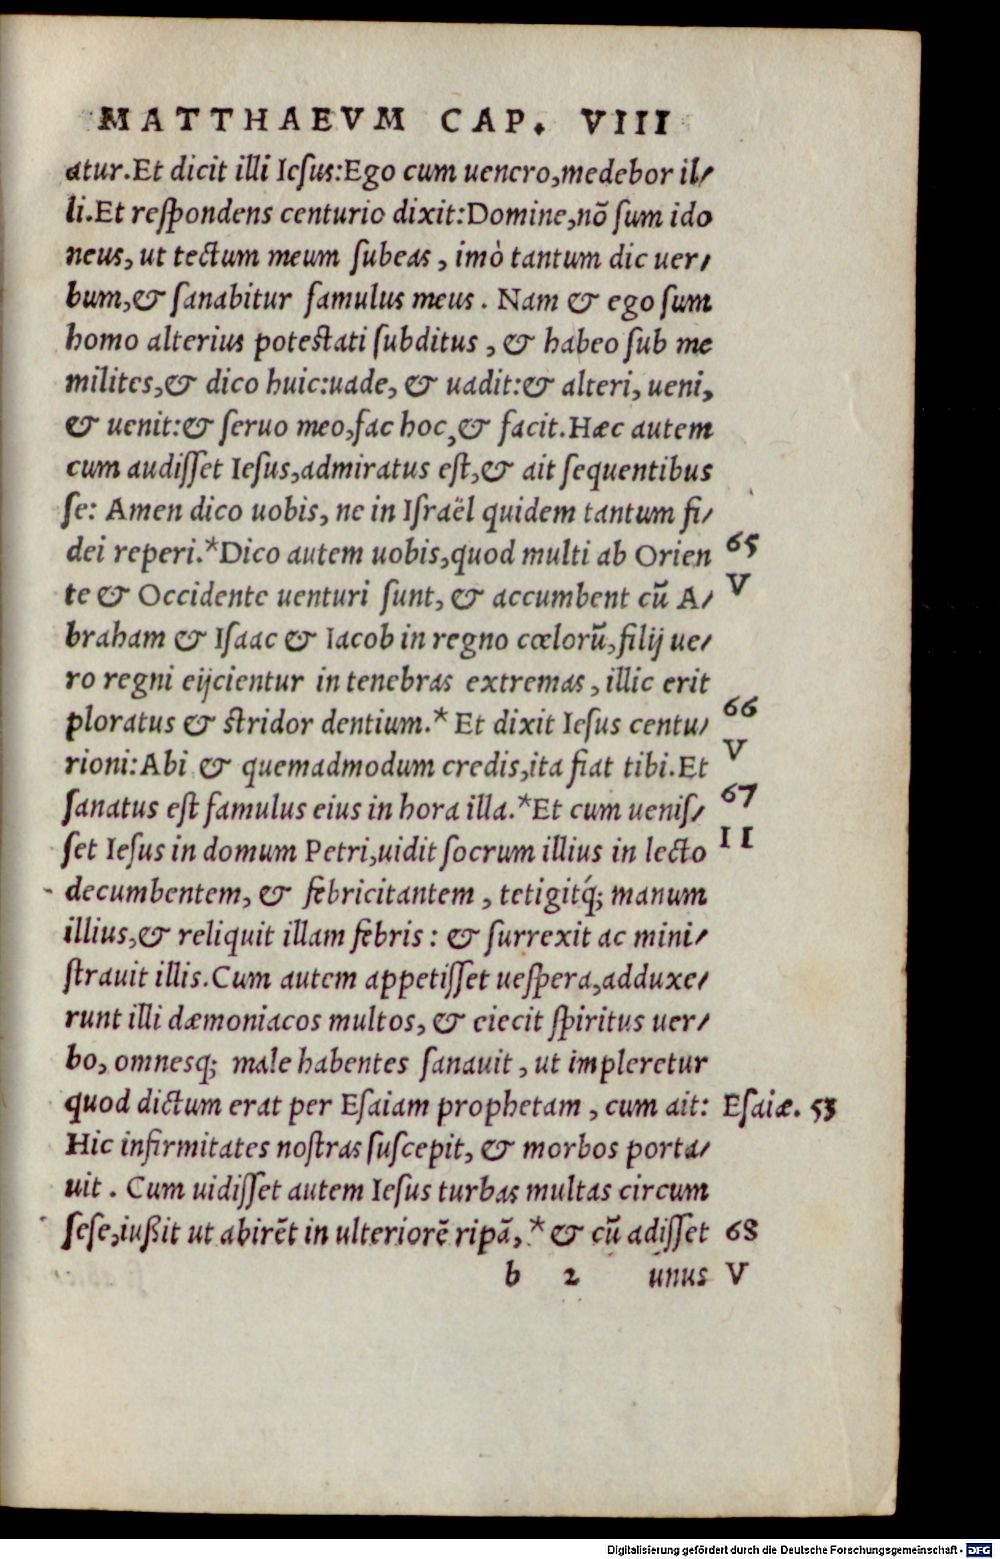 MATTHAEVM CAP. VIII
atur.Et dicit illi Ieſus:Ego cum uenero,medebor il⸗
li.Et reſpondens centurio dixit:Domine,nõ ſum ido
neus, ut tectum meum ſubeas , imò tantum dic uer⸗
bum,& ſanabitur famulus meus . Nam & ego ſum
homo alterius poteſtati ſubditus , & habeo ſub me
milites,& dico huic:uade, & uadit:& alteri, ueni,
& uenit:& ſeruo meo,fac hoc,& facit.Hæc autem
cum audiſſet Ieſus,admiratus eſt,& ait ſequentibus
ſe: Amen dico uobis, ne in Iſraël quidem tantum fi⸗
dei reperi.*Dico autem uobis,quod multi ab Orien 65
te & Occidente uenturi ſunt, & accumbent cũ A⸗ V
braham & Iſaac & Iacob in regno cœlorũ,filij ue⸗
ro regni eijcientur in tenebras extremas , illic erit
ploratus & ſtridor dentium.* Et dixit Ieſus centu⸗ 66
rioni:Abi & quemadmodum credis,ita fiat tibi.Et V
ſanatus eſt famulus eius in hora illa.*Et cum ueniſ⸗ 67
ſet Ieſus in domum Petri,uidit ſocrum illius in lecto II
decumbentem, & febricitantem , tetigitq́; manum
illius,& reliquit illam febris : & ſurrexit ac mini⸗
ſtrauit illis.Cum autem appetiſſet ueſpera,adduxe⸗
runt illi dæmoniacos multos, & eiecit ſpiritus uer⸗
bo, omnesq; male habentes ſanauit , ut impleretur
quod dictum erat per Eſaiam prophetam , cum ait: Eſaiæ. 53
Hic infirmitates noſtras ſuſcepit, & morbos porta⸗
uit . Cum uidiſſet autem Ieſus turbas multas circum
ſeſe,iußit ut abirẽt in ulteriorẽ ripã, * & cũ adiſſet 68
b 2 unus V
Digitalisierung gefördert durch die Deutsche Forschungsgemeinschaft - DFG